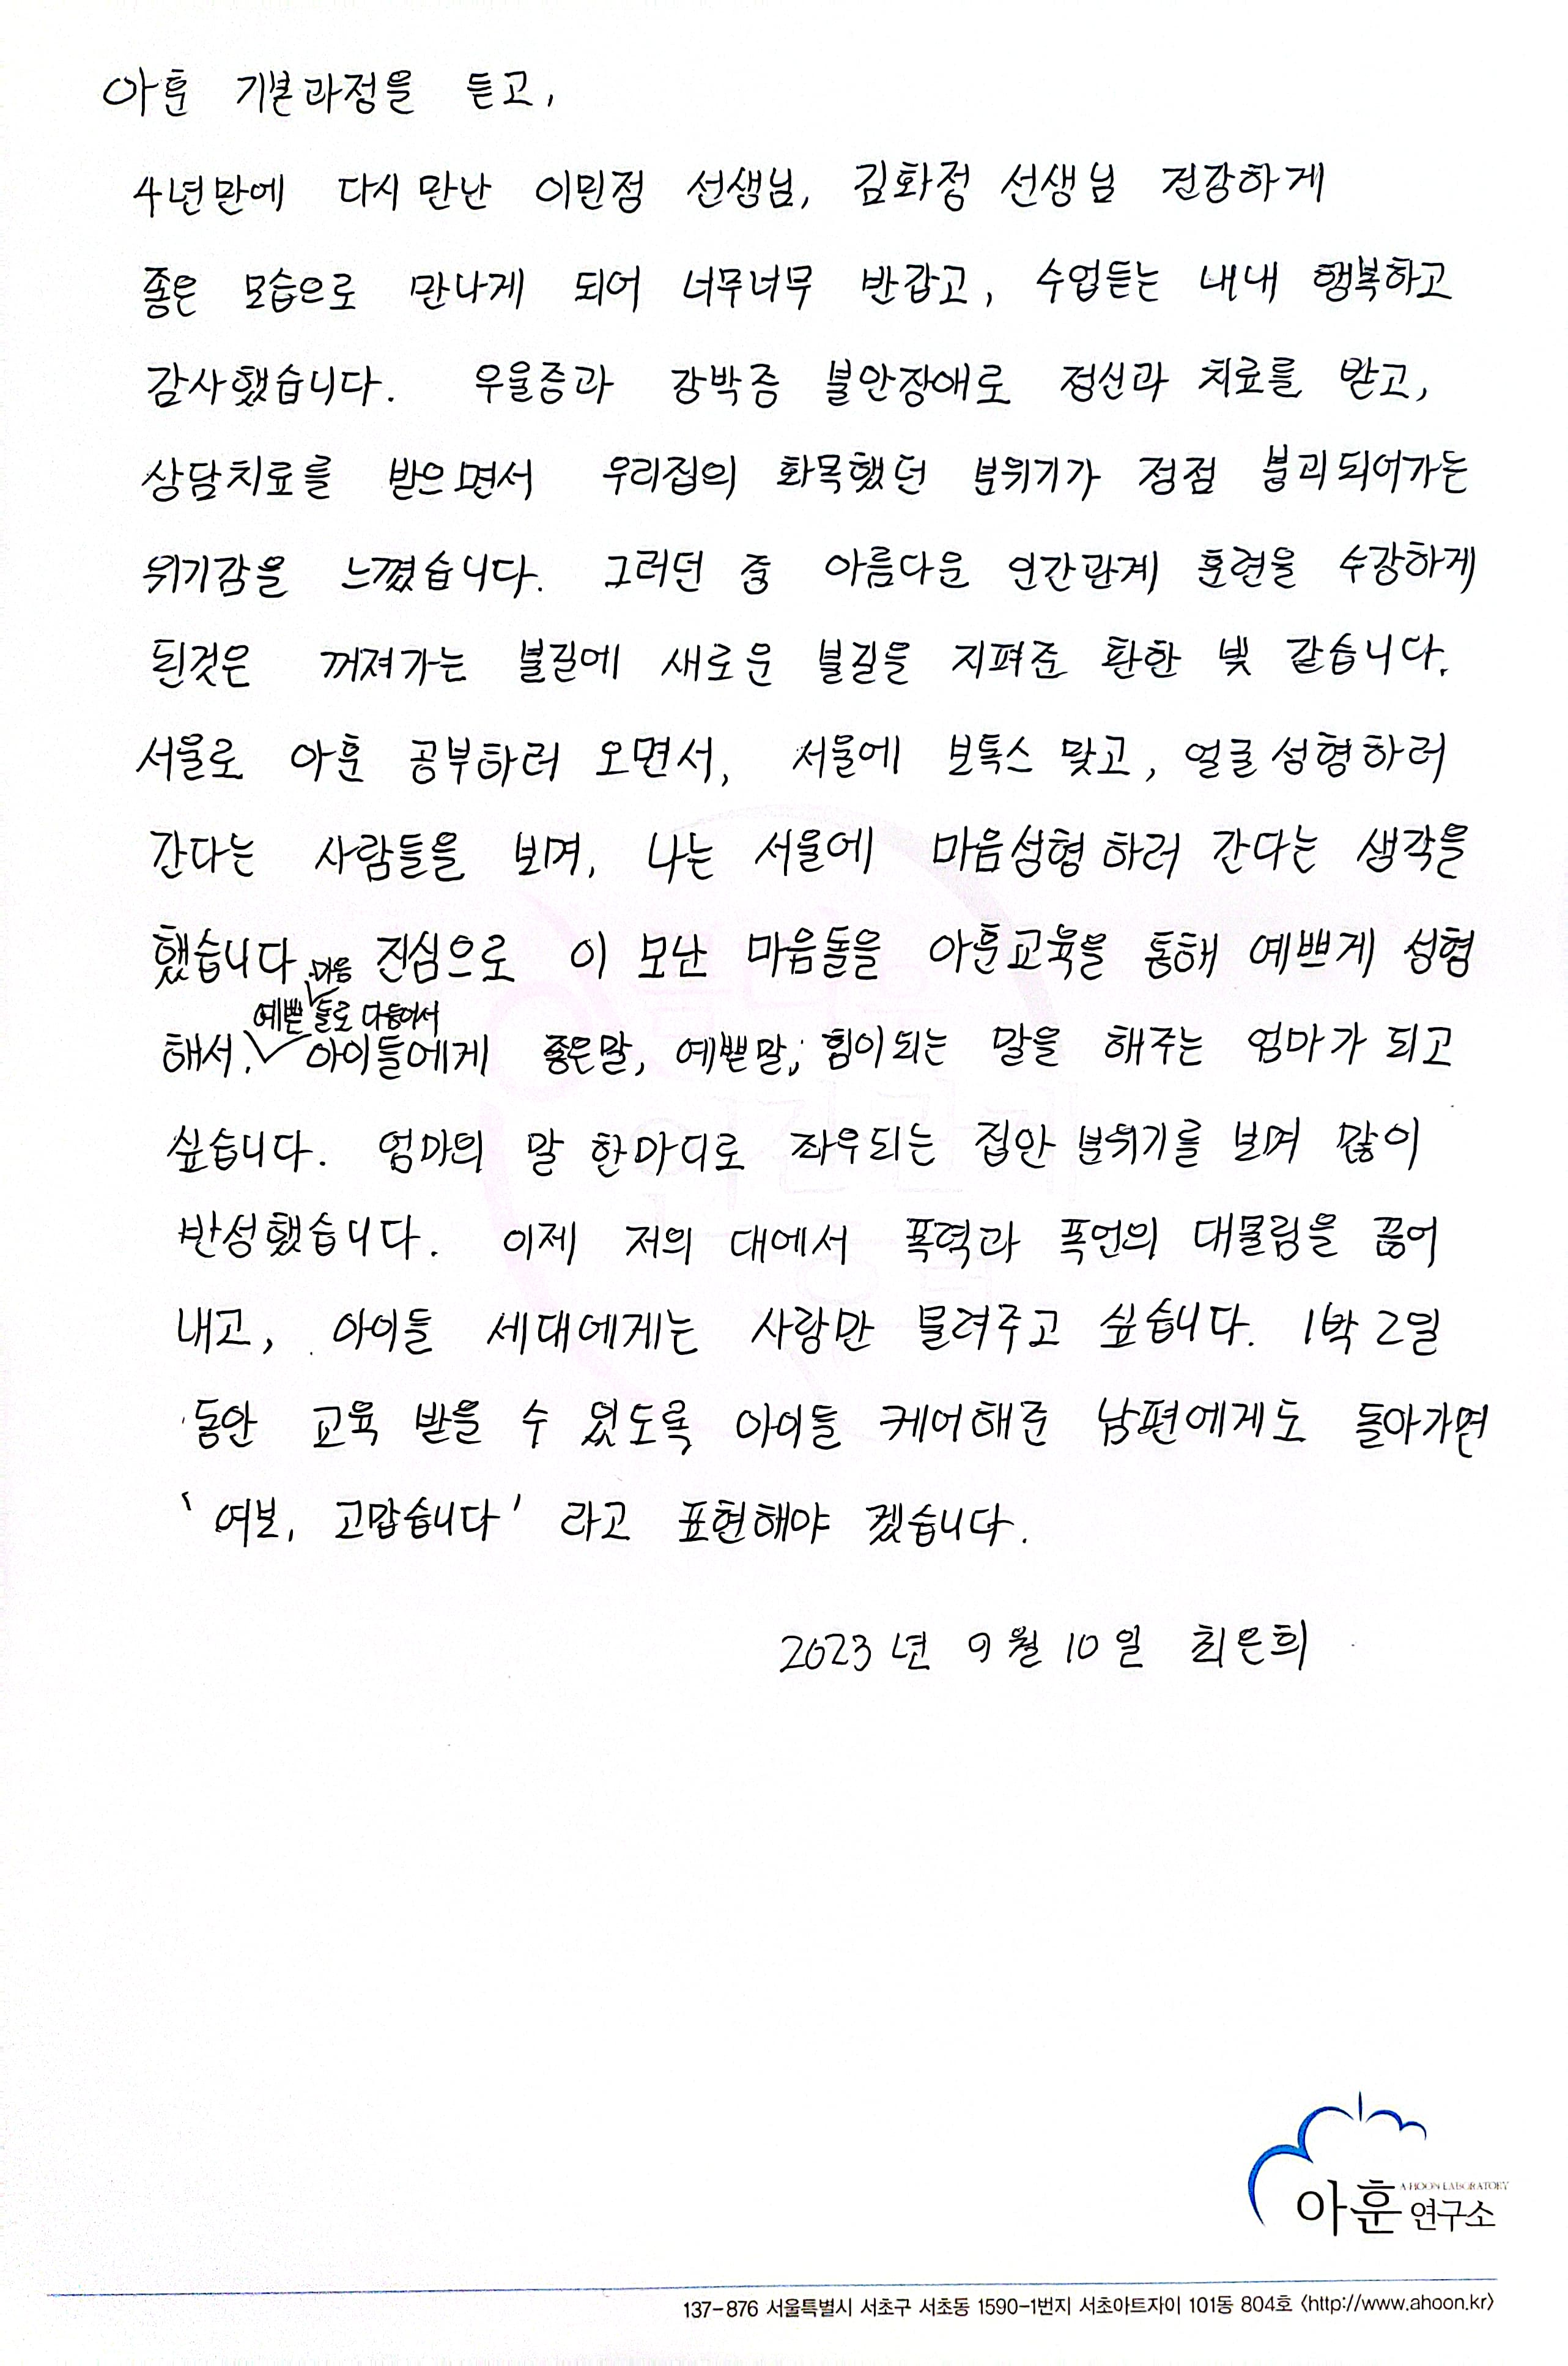 아훈 기본과정을 듣고,
4년만에 다시 만난 이민정 선생님, 김화정 선생님 건강하게
좋은 모습으로 만나게 되어 너무너무 반갑고, 수업듣는 내내 행복하고
감사했습니다. 우울증과 강박증 불안장애로 정신과 치료를 받고,
상담치료를 받으면서 우리집의 화목했던 분위기가 점점 붕괴되어가는
위기감을 느꼈습니다. 그러던 중 아름다운 인간관계 훈련을 수강하게
된것은 꺼져가는 불길에 새로운 불길을 지펴준 환한 빛 같습니다.
서울로 아훈 공부하러 오면서, 서울에 보톡스 맞고, 얼굴 성형하러
간다는 사람들을 보며, 나는 서울에 마음성형 하러 간다는 생각을
했습니다. 진심으로 이 모난 마음돌을 아훈교육을 통해 예쁘게 성형
해서, 예쁜 마음 돌로 다듬어서 아이들에게 좋은말, 예쁜말, 힘이되는 말을 해주는 엄마가 되고
싶습니다. 엄마의 말 한마디로 좌우되는 집안 분위기를 보며 많이
반성했습니다. 이제 저의 대에서 폭력과 폭언의 대물림을 끊어
내고, 아이들 세대에게는 사랑만 물려주고 싶습니다. 1박 2일
동안 교육 받을 수 있도록 아이들 케어해준 남편에게도 돌아가면
'여보, 고맙습니다' 라고 표현해야 겠습니다.
2023년 9월 10일 최은희
A HOON LABORATORY
아훈 연구소
137-876 서울특별시 서초구 서초동 1590-1번지 서초아트자이 101동 804호 <http://www.ahoon.kr>